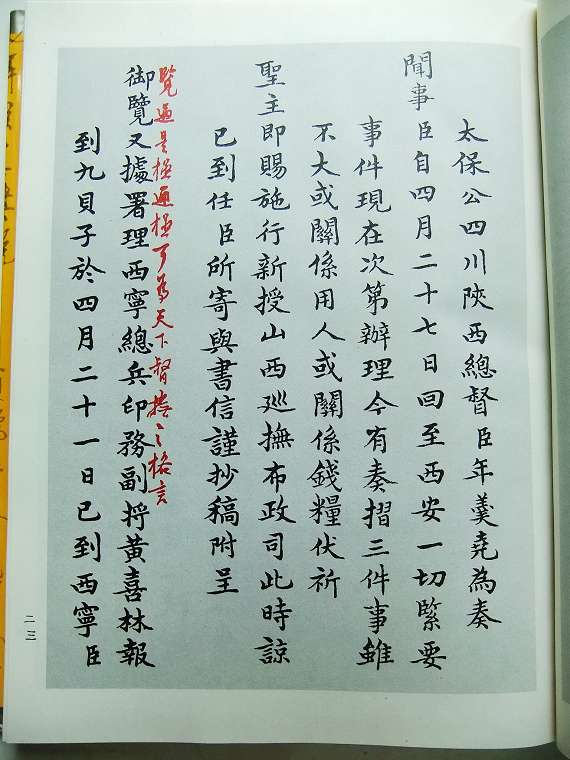 太保公四川陝西總督臣年羹堯為奏
聞事臣自四月二十七日回至西安一切緊要
事件現在次第辦理今有奏摺三件事雖
不大或關係用人或關係錢糧伏祈
聖主即賜施行新授山西巡撫布政司此時諒
已到任臣所寄與書信謹抄稿附呈
覽過是極通極可為天下督撫之格言
御覽又據署理西寧總兵印務副將黃喜林報
到九貝子於四月二十一日已到西寧臣
二三